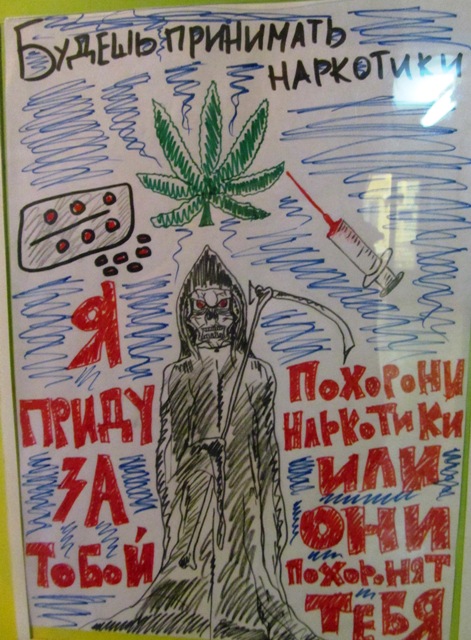 БУДЕШЬ ПРИНИМАТЬ
НАРКОТИКИ
Я
ПРИДУ
ЗА
ТОБОЙ
ПОХОРОНИ
НАРКОТИКИ
ИЛИ
ОНИ
ПОХОРОНЯТ
ТЕБЯ